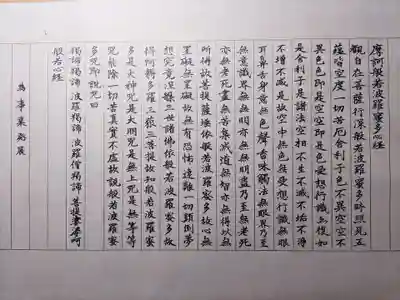 摩訶般若波羅蜜多心経
觀自在菩薩行深般若波羅蜜多時照見五
蘊皆空度一切苦厄舎利子色不異空空不
異色色即是空空即是色受想行識亦復如
是舎利子是諸法空相不生不滅不垢不浄
不增不減是故空中無色無受想行識無眼
耳鼻舌身意無色聲香味觸法無眼界乃至
無意識界無無明亦無無明盡乃至無老死
亦無老死盡無苦集滅道無智亦無得以無
所得故菩提薩埵依般若波羅蜜多故心無
罣礙無罣礙故無有恐怖遠離一切顛倒夢
想究竟涅槃三世諸佛依般若波羅蜜多故
得阿耨多羅三藐三菩提故知般若波羅蜜
多是大神咒是大明咒是無上咒是無等等
咒能除一切苦真實不虚故説般若波羅蜜
多咒即説咒曰
揭諦揭諦 波羅揭諦 波羅僧揭諦 菩提薩婆訶
般若心経
為事業発展